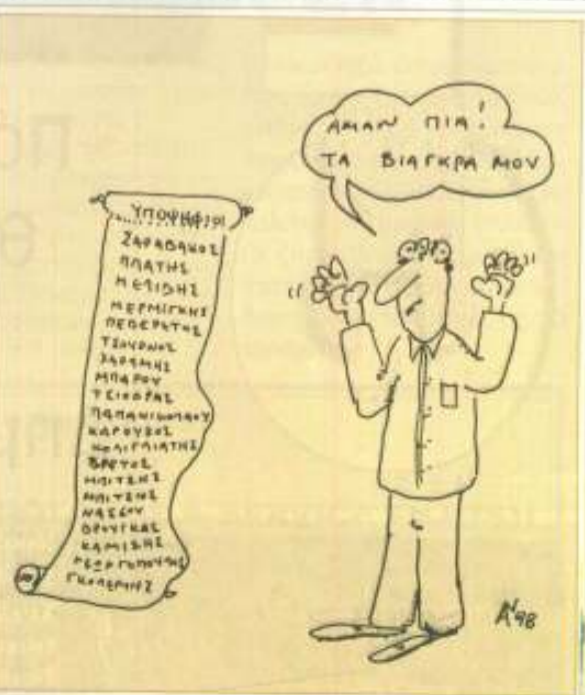 ΑΜΑΝ ΠΙΑ!
ΤΑ ΒΙΑΓΚΡΑ ΜΟΥ
ΥΠΟΨΗΦΙΟΙ
ΖΑΡΑΒΑΚΟΣ
ΠΛΑΤΗΣ
ΜΕΛΙΔΗΣ
ΜΕΡΜΙΓΚΗΣ
ΠΕΒΕΡΕΤΟΣ
ΤΣΟΥΡΝΟΣ
ΧΑΡΑΜΗΣ
ΜΠΑΡΟΥ
ΤΣΙΟΔΡΑΣ
ΠΑΠΑΝΙΚΟΛΑΟΥ
ΚΑΡΟΥΖΟΣ
ΚΟΛΙΓΛΙΑΤΗΣ
ΒΡΕΤΟΣ
ΜΠΙΤΣΗΣ
ΜΠΙΤΣΗΣ
ΝΑΣΣΟΥ
ΒΡΟΥΓΚΑΣ
ΚΑΜΙΣΗΣ
ΓΕΩΡΓΟΠΟΥΛΟΣ
ΓΚΟΛΕΜΗΣ
Α'98